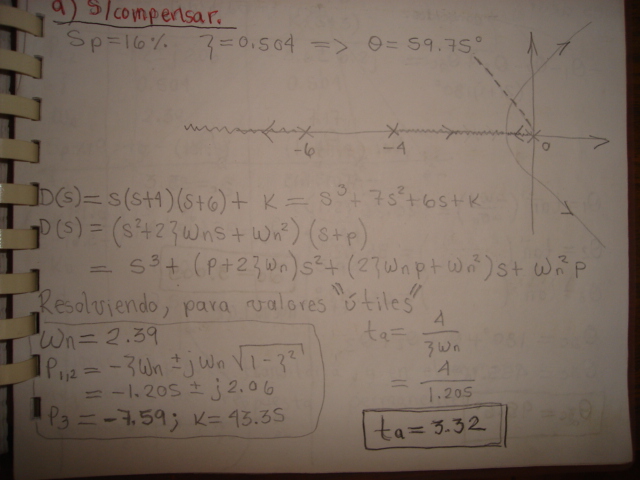 a) S/compensar.
Sp=16% ζ=0.504 => θ=59.75°
-6 -4 0
D(s)=s(s+4)(s+6)+ K = s³+7s²+6s+K
D(s)=(s²+2ζωns+ωn²)(s+p)
= s³+(p+2ζωn)s²+(2ζωnp+ωn²)s+ωn²p
Resolviendo, para valores "útiles"
ωn=2.39
P1,2=-ζωn±jωn√1-ζ²
=-1.205±j2.06
P3=-7.59; K=43.35
ta=4/ζωn
=4/1.205
ta=3.32